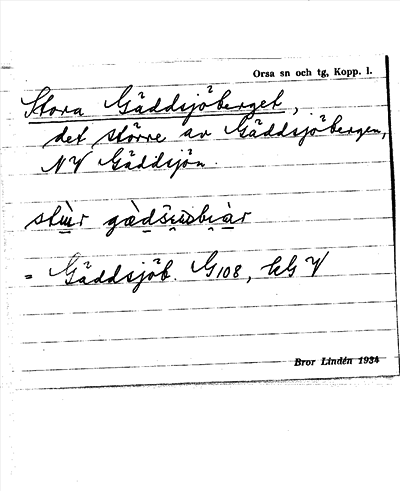 Orsa sn och tg, Kopp. l.
Stora Gäddsjöberget,
det större av Gäddsjöbergen,
NV Gäddsjön.
stùr
= Gäddsjöb. G108, kG V
Bror Lindén 1934